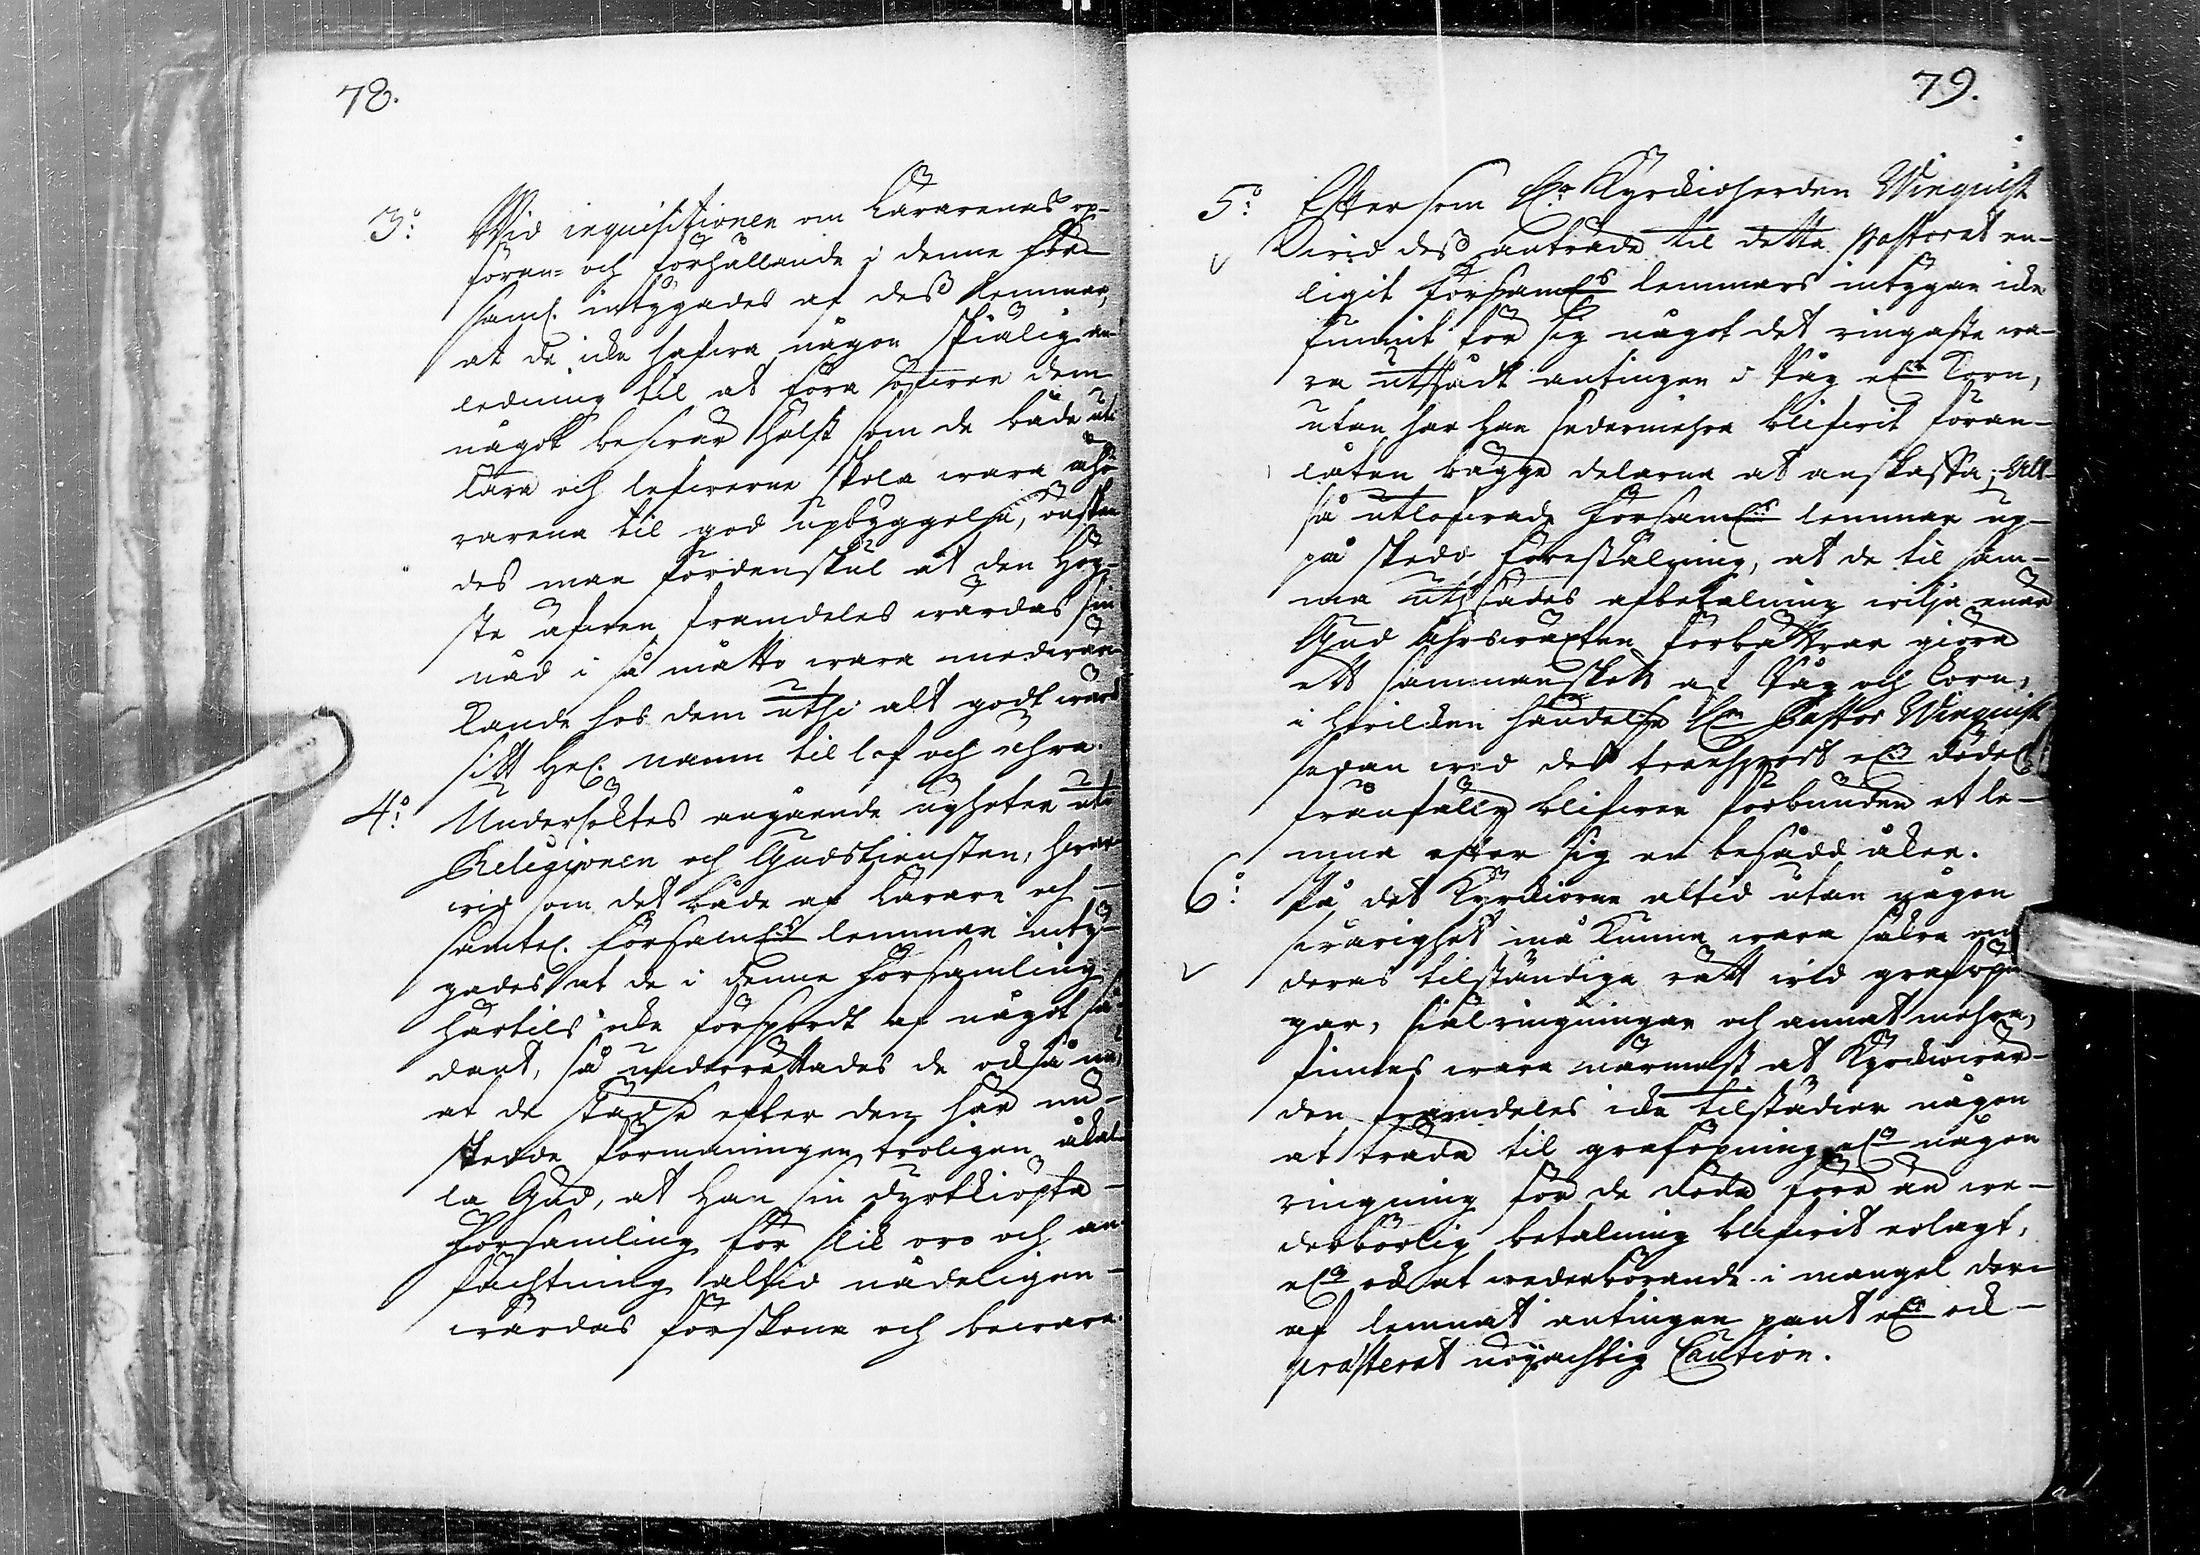 78.
3:o Wid inquisitionen om Lärarenas up-
föran- och förhållande i denne För-
saml. intygades af deß lemmar,
at de icke hafwa någon skiälig an-
ledning til at föra öfwer dem
något beswär hälst som de både uti
Lära och lefwerne skola wara åhö-
rarena til god upbyggelse, önska-
des man fördenskul at den Hög-
ste äfwen framdeles wärdas sin
nåd i så måtto wara medwär-
kande hos dem uthi alt godt
sitt Hel. namn til lof och ähra.
4:o Undersöktes angående nyheter uti
Religionen och Gudstiensten, hwar
wid som det både af Lärare och
samtel. Församl:s lemmar inty-
gades at de i denne Församling
härtils icke försport af något så-
dant, så underrättades de också nu,
at de städse efter den här nu
skedde förmaningen troligen åkal-
la Gud, at Han sin dyrtkiöpta
Församling för slik oro och an-
fächtning altid nådeligen
wärdas förskona och bewara.
79.
5:o Efter som H:r Kyrckioherden Winquist
wid deß anträde til detta pastorat en-
ligit Församl:s lemmars intygan icke
funnit för sig något det ringaste wa-
ra utsådt antingen i Råg ell:r Korn,
utan har Han sedermehra blifwit föran-
låten bägge delarne at anskaffa; Alt-
så utlofwade Församl:s lemmar up-
på skedd föreställning, at de til sam-
ma utsädes afbetalning wilja enär
Gud Åhrswäxten förbättrar giöra
ett sammanskott af Råg och Korn,
i hwilken händelse H:r Pastor Winquist
sedan wid deß transport ell:r dödel.
frånfälle blifwer förbunden at le-
mna efter sig en besådd åker.
6:o På det Kyrckiorne altid utan någon
swårighet må kunna wara säkra om
deras tilständiga rätt wid graföpn-
gar, siälringningar och annat mehra,
funnes wara närmast at Kyrckiowär-
den framdeles icke tilstädier någon
at träda til graföpning ell:r någon
ringning för de döda förr än we-
derbörlig betalning blifwit erlagt,
ell:r ock at wederbörande i mangel der-
af lemnat antingen pant ell:r ock
præsterat nöijachtig Caution.